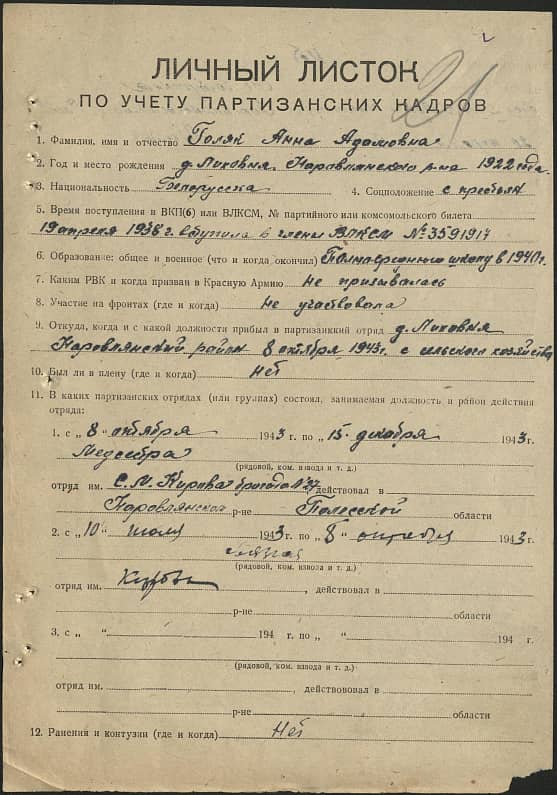 21
ЛИЧНЫЙ ЛИСТОК
ПО УЧЕТУ ПАРТИЗАНСКИХ КАДРОВ
1. Фамилия, имя и отчество Поляк Анна Адамовна
2. Год и место рождения д. Лиховня Наровлянского р-на 1922 года.
3. Национальность Белорусска 4. Соцположение с крестьян
5. Время поступления в ВКП(б) или ВЛКСМ, № партийного или комсомольского билета
19 апреля 1938 г. вступила в члены ВЛКСМ № 3591917
6. Образование: общее и военное (что и когда окончил) школу в 1940 г.
7. Каким РВК и когда призван в Красную Армию не призывалась
8. Участие на фронтах (где и когда) Не участвовала
9. Откуда, когда и с какой должности прибыл в партизанский отряд д. Лиховня
Наровлянский район 8 октября 1943 г. с сельского хозяйства
10. Был ли в плену (где и когда) Нет
11. В каких партизанских отрядах (или группах) состоял, занимаемая должность и район действия
отряда:
1. с „8" октября 1943 г. по „15" декабря 1943 г.
Медсестра
(рядовой, ком. взвода и т. д.)
отряд им. С. М. Кирова бригада № 27 действовал в
Наровлянском р-не Полесской области
2. с „10" июля 1943 г. по „8" октября 1943 г.
связная
(рядовой, ком. взвода и т. д.)
отряд им. , действовал в
р-не области
3. с „ " 194 г. по „ " 194 г.
(рядовой, ком. взвода и т. д.)
отряд им. , действововал в
р-не области
12. Ранения и контузии (где и когда) Нет